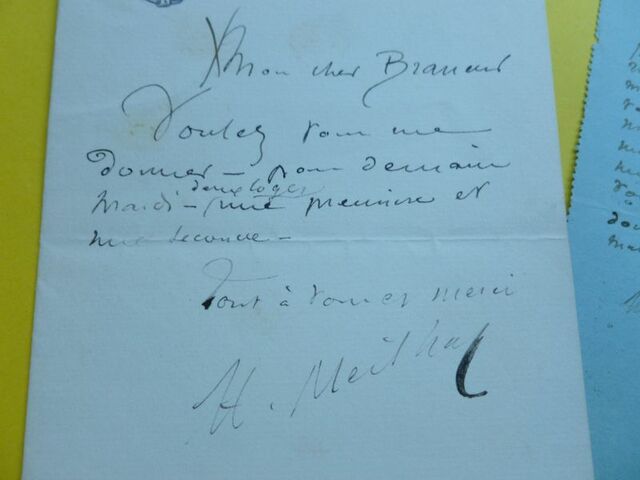 Mon cher Braneur
Voulez vous me
donner - pour demain
deux loges
Mardi - une première et
une seconde -
Tout à vous et merci
H. Meilhac